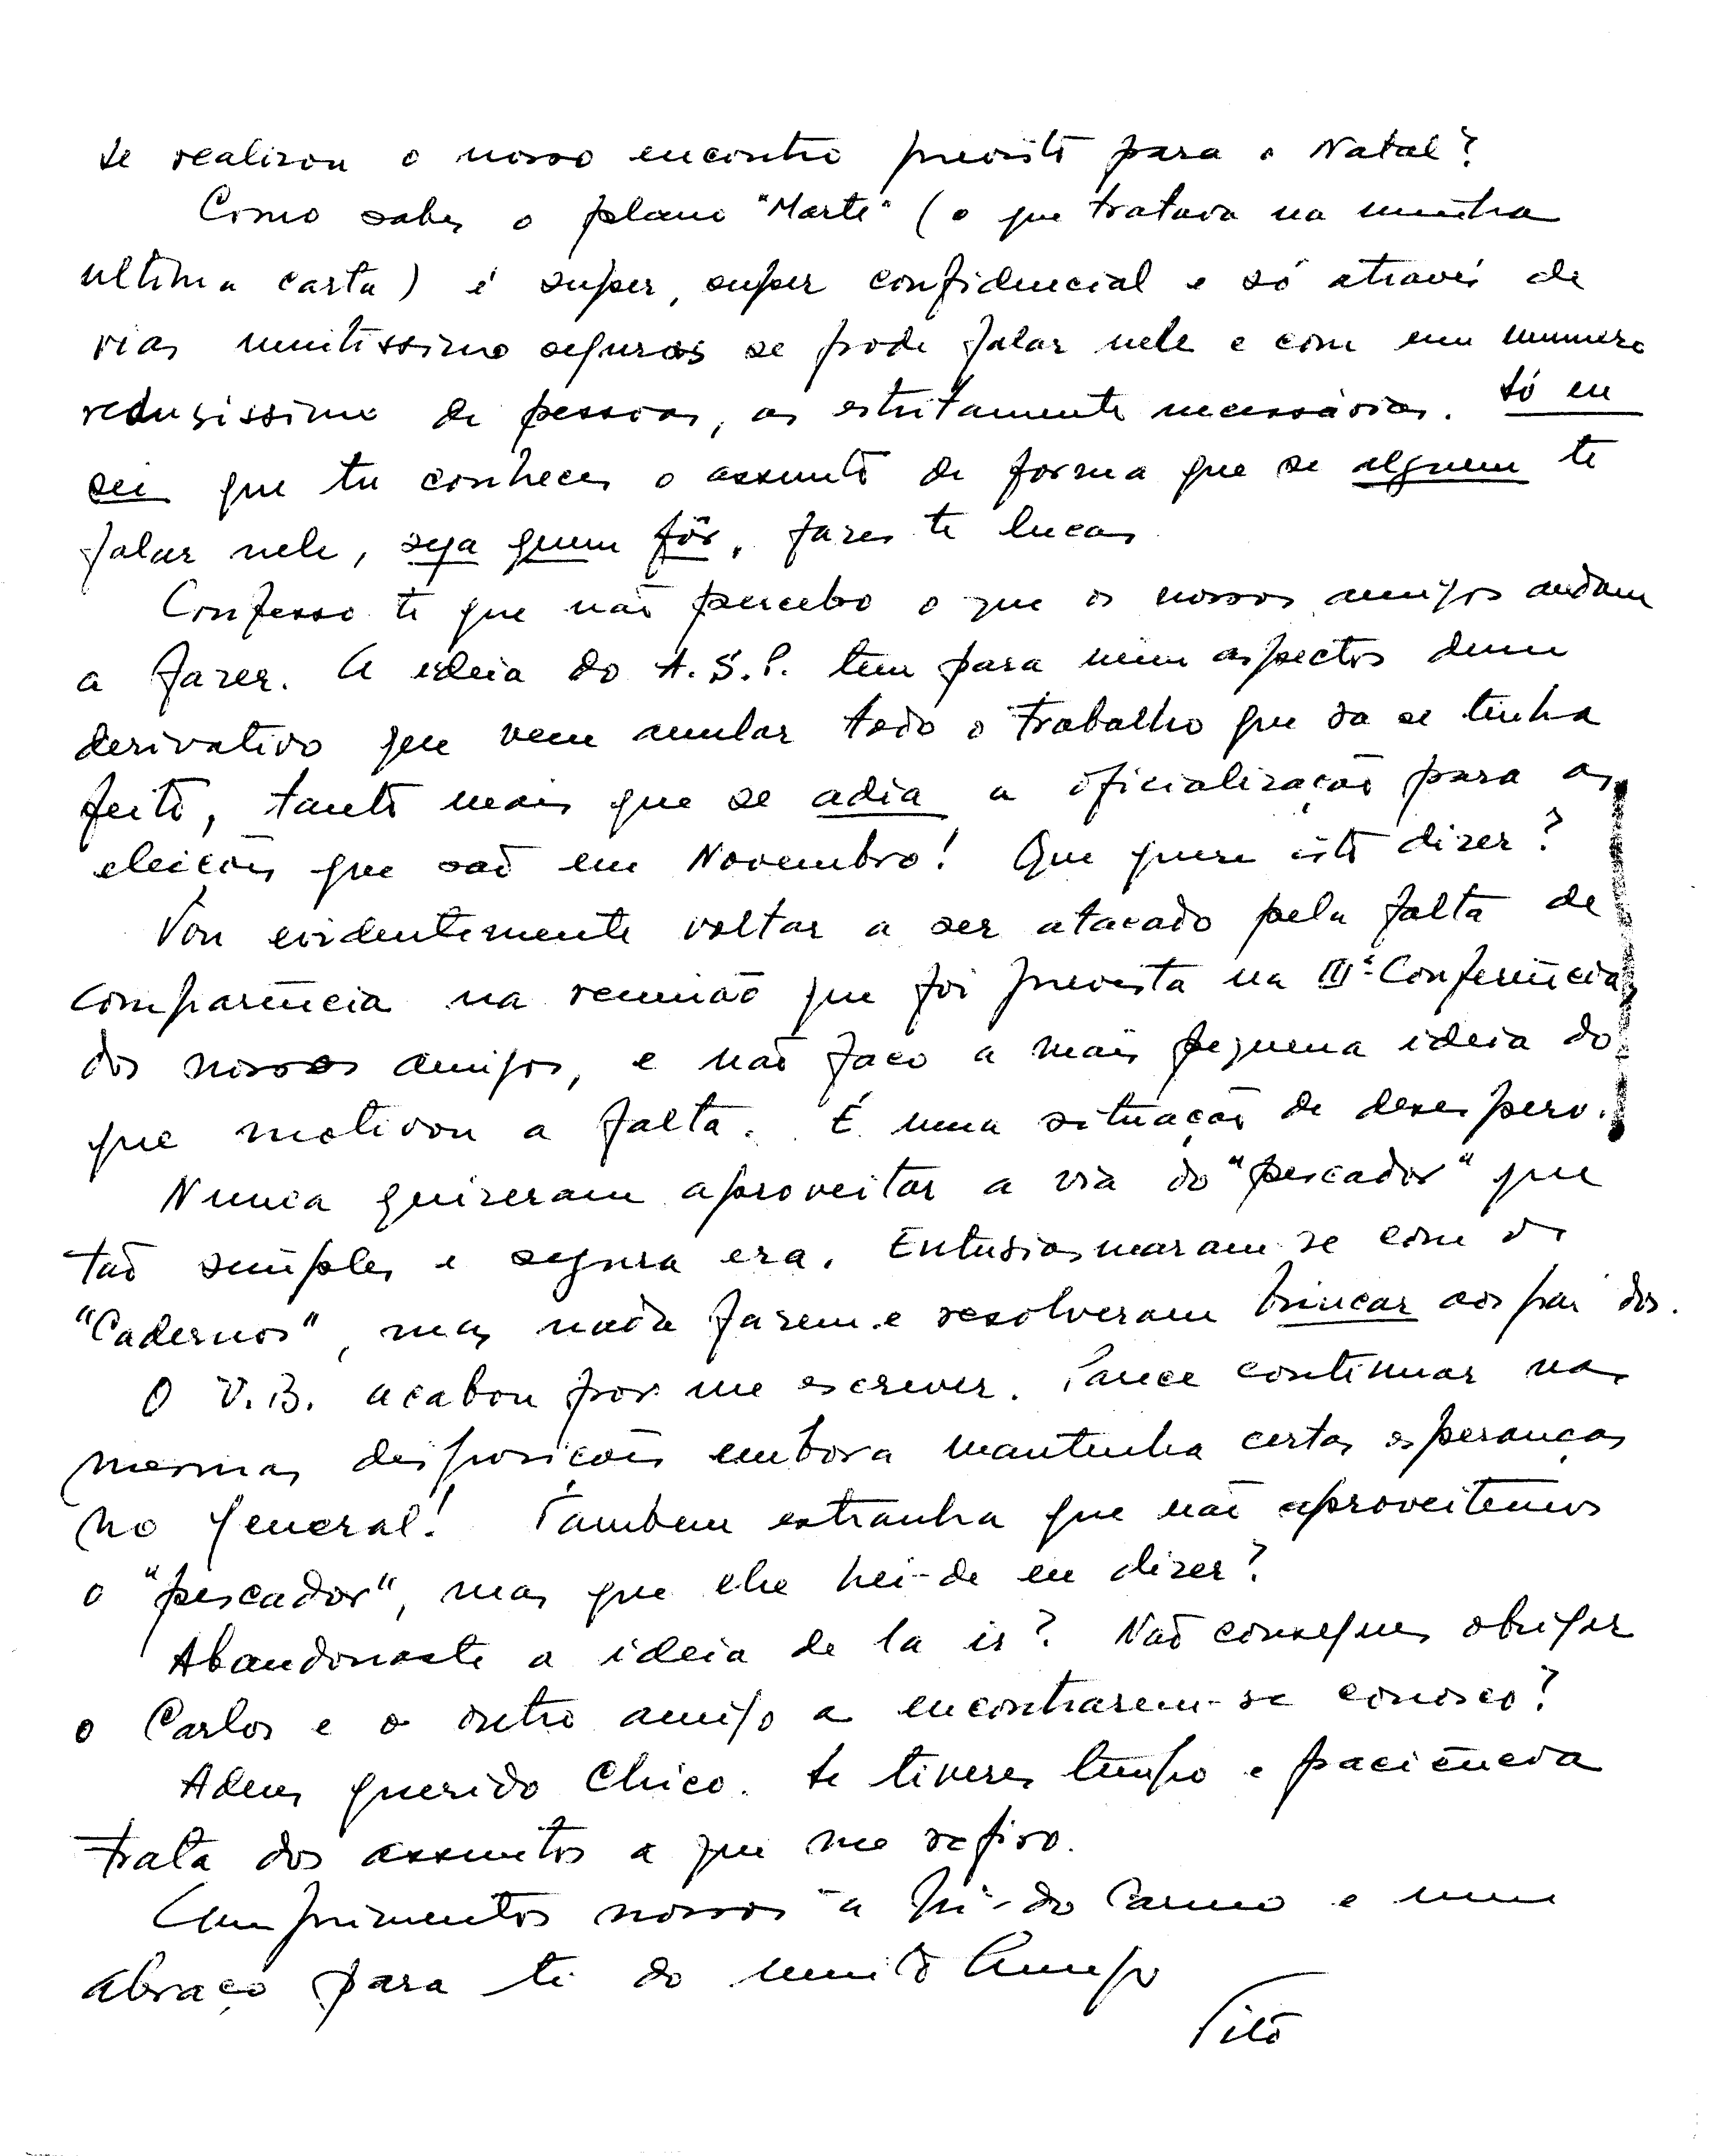 se realizou o nosso encontro previsto para o Natal?
Como sabes o plano "Marte" (o que tratava na minha
ultima carta) é super, super confidencial e só através de
vias muitissimo seguras se pode falar nele e com um numero
redusissimo de pessoas, as estritamente necessárias. Só eu
sei que tu conheces o assunto de forma que se alguem te
falar nele, seja quem fôr, fazes te lucas
Confesso te que não percebo o que os nossos amigos andam
a fazer. A ideia do A.S.P. tem para mim aspectos dum
derivativo que vem anular todo o trabalho que já se tinha
feito, tanto mais que se adia a oficialização para as
eleições que são em Novembro! Que quere isto dizer?
Vou evidentemente voltar a ser atacado pela falta de
comparência na reunião que foi prevista na IIIª Conferência
dos nossos amigos, e não faço a mais pequena ideia do
que motivou a falta. É uma situação de desespero.
Nunca quizeram aproveitar a via do "pescador" que
tão simples e segura era. Entusiasmaram-se com os
"Cadernos", mas nada fazem e resolveram brincar aos partidos.
O V.B. acabou por me escrever. Parece continuar nas
mesmas disposições embora mantenha certas esperanças
no general! Tambem extranha que não aproveitemos
o "pescador", mas que lhe hei-de eu dizer?
Abandonaste a ideia de la ir? Não consegues obrigar
o Carlos e o outro amigo a encontrarem-se conosco?
Adeus querido Chico. Se tiveres tempo e paciência
trata dos assuntos a que me refiro.
Cumprimentos nossos à do Carmo e um
abraço para ti do muito Amigo
Tito